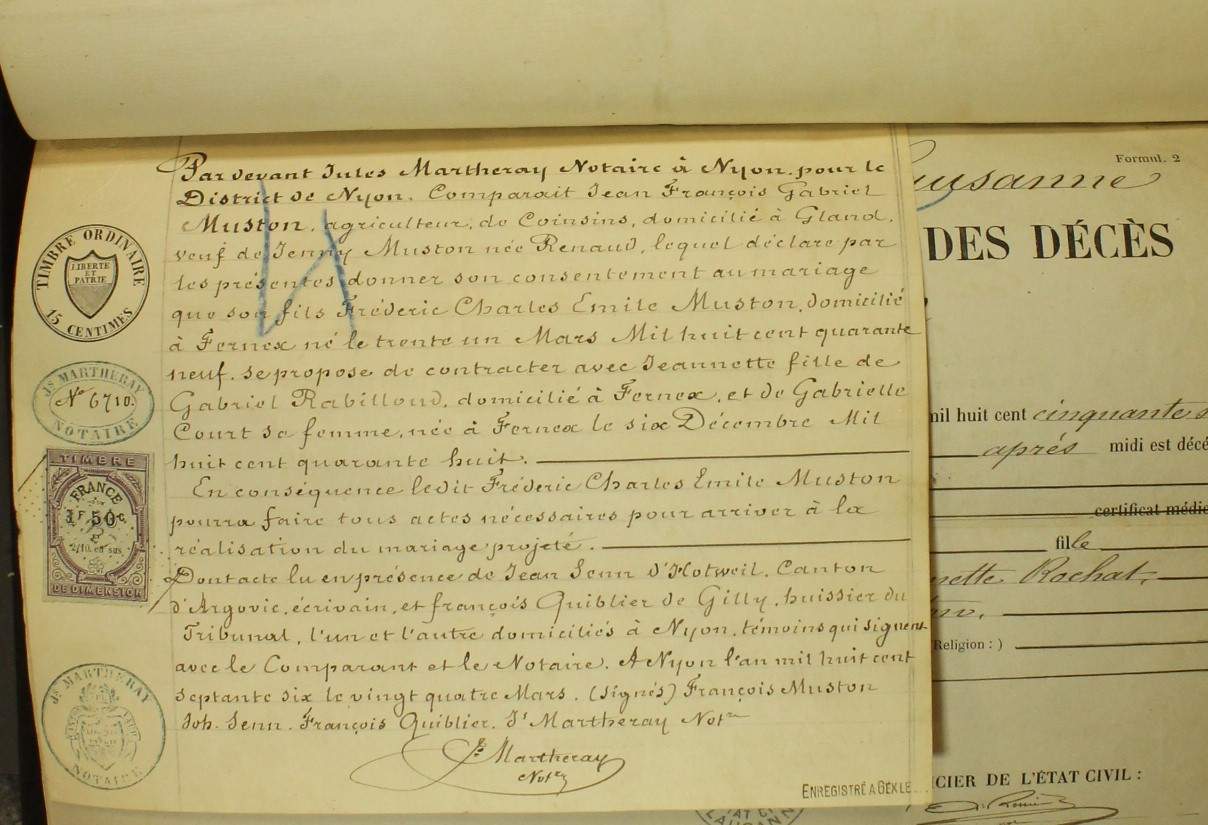 Par devant Jules Martheray Notaire à Nyon, pour le
District de Nyon. Comparait Jean François Gabriel
Muston, agriculteur, de Coinsins, domicilié à Gland,
veuf de Jenny Muston née Renaud, lequel déclare par
les présentes donner son consentement au mariage
que son fils Fréderic Charles Emile Muston, domicilié
à Fernex né le trente un Mars Mil huit cent quarante
neuf, se propose de contracter avec Jeannette fille de
Gabriel Rabilloud, domicilié à Fernex, et de Gabrielle
Court sa femme, née à Fernex le six Décembre Mil
huit cent quarante huit.
En conséquence ledit Fréderic Charles Emile Muston
pourra faire tous actes nécessaires pour arriver à la
réalisation du mariage projeté.
Dont acte lu en présence de Jean Senn d'Hotweil, Canton
d'Argovie, écrivain, et françois Quiblier de Gilly, huissier du
Tribunal, l'un et l'autre domiciliés à Nyon, témoins qui signent
avec le Comparant et le Notaire. A Nyon l'an mil huit cent
septante six le vingt quatre Mars. (Signés) François Muston
Joh. Senn. François Quiblier. Js Martheray Notre
Js Martheray
Notre
ENREGISTRÉ A GEX LE
TIMBRE ORDINAIRE
LIBERTE
ET
PATRIE
15 CENTIMES
Js MARTHERAY
No 6710.
NOTAIRE
TIMBRE
FRANCE
50c
2/10 en sus
DE DIMENSION
Js MARTHERAY
NOTAIRE
Formul. 2
usanne
DES DÉCÈS
mil huit cent cinquante s
après midi est décé
certificat médic
fille
nette Rochat,
Religion : )
CIER DE L'ÉTAT CIVIL :
LAUSANN